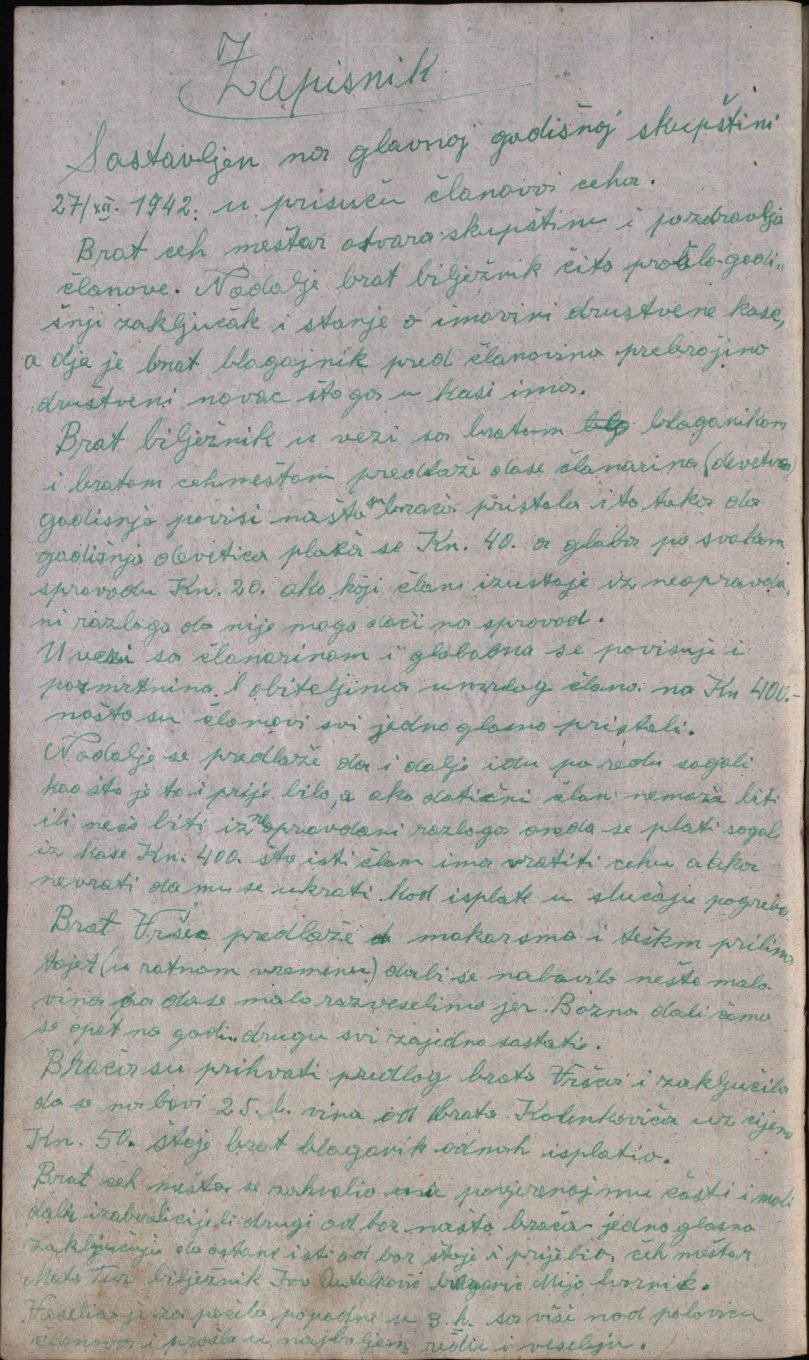 Zapisnik
Sastavljen na glavnoj godišnoj skupštini
27/XII. 1942. u prisuću članova ceha.
Brat ceh meštar otvara skupštinu i pozdravlja
članove. Nadalje brat bilježnik čita prošlo-godi„
šnji zaključak i stanje o imovini društvene kase,
a dje je brat blagajnik pred članovima prebrojino
društveni novac što ga u kasi ima.
Brat bilježnik u vezi sa bratom blaganikom
i bratom cehmeštom predlaže dase članarina (devetica)
godisnja povisi našto su braća pristala i to, tako da
godišnja devetica plaća se Kn. 40. a globa po svakom
sprovodu Kn. 20. ako koji član izustaje iz neopravda„
ni razloga da nije mogo doći na sprovod.
U vezi sa članarinom i globama se povisuje i
posmrtnina obiteljima umrlog člana na Kn 400.-
našto su članovi svi jednoglasno pristali.
Nadalje se predlaže da i dalje idu po redu sogoli
kao što je to i prije bilo, a ako dotični član nemože biti
ili neće biti iz neopravdani razloga onda se plati sogoli
iz kase Kn. 400. što isti član ima vratiti cehu a ako
nevrati da mu se ukrati kod isplate u slučaju pogreba
Brat Vršec predlaže makarsmo i teškm prilima
(u ratnom vremenu) dabi se nabavilo nešto malo
vina pa dase malo razveselimo jer Bozna dali ćemo
se opet na godi„ drugu svi zajedno sastati.
Braća su prihvati predlog brata Vršca i zaključila
da se nabavi 25. l. vina od brata Kolenkovića uz cijenu
Kn. 50. štoje brat blaganik odmah isplatio.
Brat ceh meštar se zahvalio na povjerenoj mu časti i moli
dali izabralicijeli drugi odbor našto braća jedno glasno
zaključuju da ostane isti odbor štoje i prijebio, ceh meštar
Mato Tur bilježnik Ivo blaganic Mijo hvornik.
Veselica je započela popodne u 3. h. sa više nod polovicu
članova i prošla u najboljem redu i veselju.